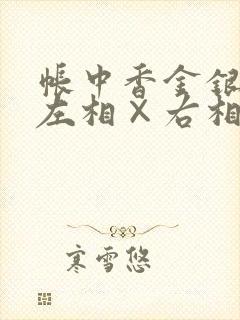 帳中香金銀
左相×右相
寒雪悠